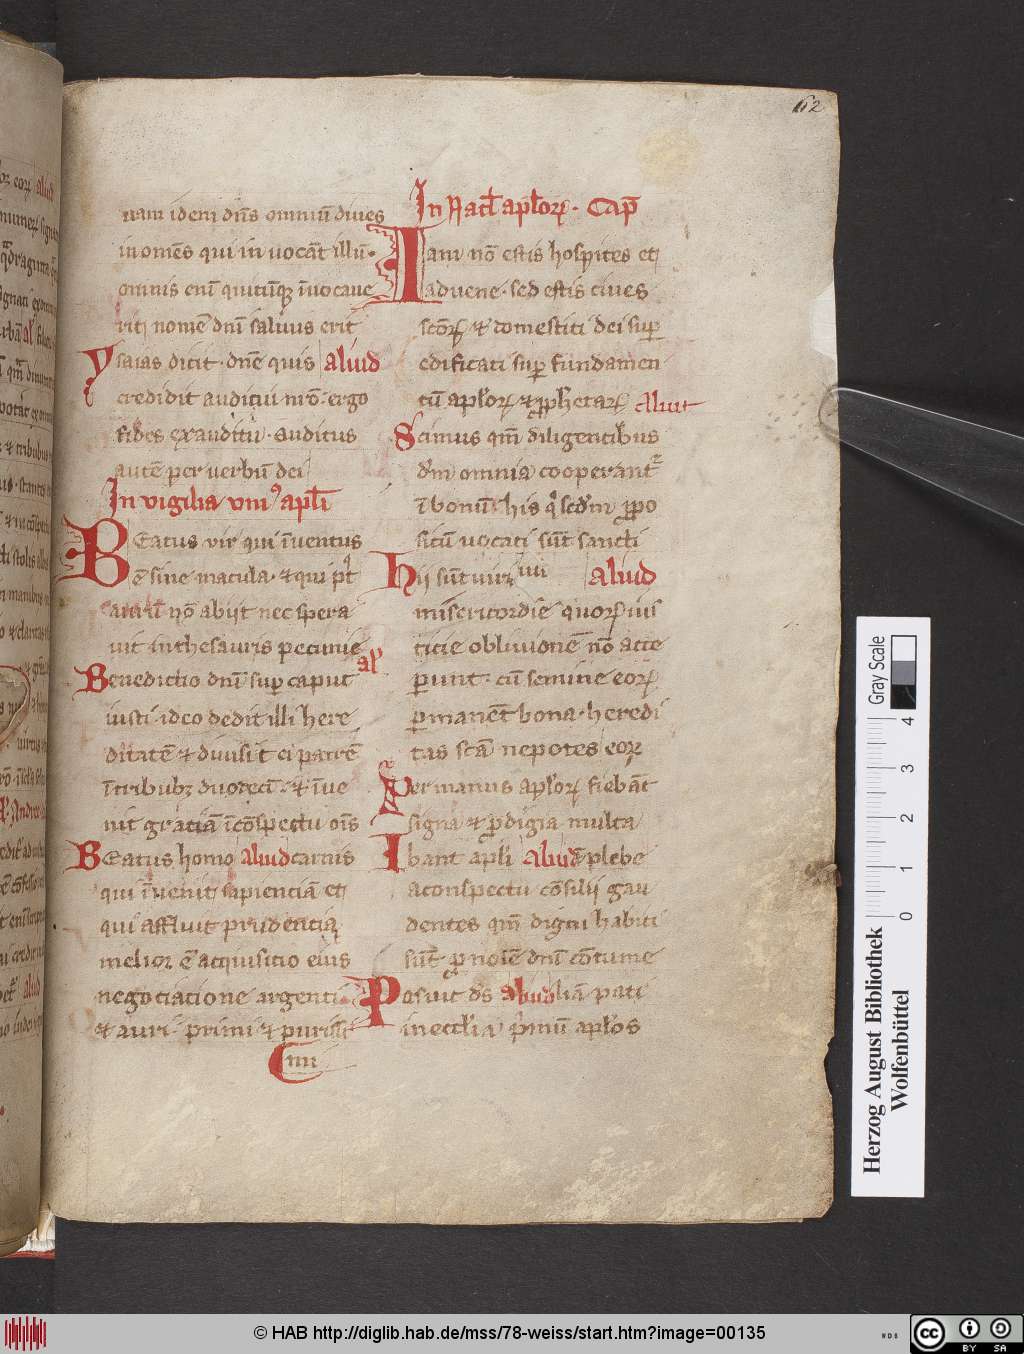 62
nam idem dn̄s omniū diues
in om̄es qui in uocāt illū·
omnis eni̅ quicūq; īuocaue
rit nomē dn̄i saluus erit
Ysaias dicit· dn̄e quis aliud
credidit auditui nr̄o· ergo
fides ex auditu· auditus
autē per uerbū dei
In vigilia vni⁹ apl̄i
Beatus vir qui īuentus
ē sine macula· et qui pt̄
aurū nō abiit nec spera
uit in thesauris pecunie
al̄
Benedictio dn̄i sup caput
iusti· ideo dedit illi here
ditatē et diuisit ei partē
ītribubꝫ duodeci̅· et īue
nit gratiā īcōspectu ōis
Beatus homo aliud carnis
qui īuenit sapientiā et
qui affluit prudentia
melior ē acquisitio eius
negociatione argenti
et auri· primi et purissi
mi
In Natl̄ apl̄oꝝ· Cap̄
Iam nō estis hospites et
aduene· sed estis ciues
sc̄oꝝ et domestici dei sup
edificati sup̱ fundamen
tū apl̄oꝝ et ꝓphetaꝝ Aliut
Scimus qm̄ diligentibus
dm̄ omnia cooperant᷑
ī bonū· his q̇ secdm ꝓpo
situ̅ uocati su̅t sancti
Hii su̅t uiri aliud
misericordie quoꝝ ius
ticie obliuionē nō acce
ꝑunt· cū semine eoꝝ
ꝑmanēt bona· heredi
tas sc̄a nepotes eoꝝ
Per manus apl̄oꝝ fiebāt
signa et ꝓdigia multa
Ibant apl̄i Aliud ī plebe
a conspectu cōsilii gau
dentes qm̄ digni habiti
su̅t ꝓ noīe dn̄i cōtume
Posuit ds̄ Aliud liā pati
in eccl̄ia p̄mū apl̄os
Herzog August Bibliothek
Wolfenbüttel
0 1 2 3 4
Gray Scale
© HAB http://diglib.hab.de/mss/78-weiss/start.htm?image=00135
cc BY SA